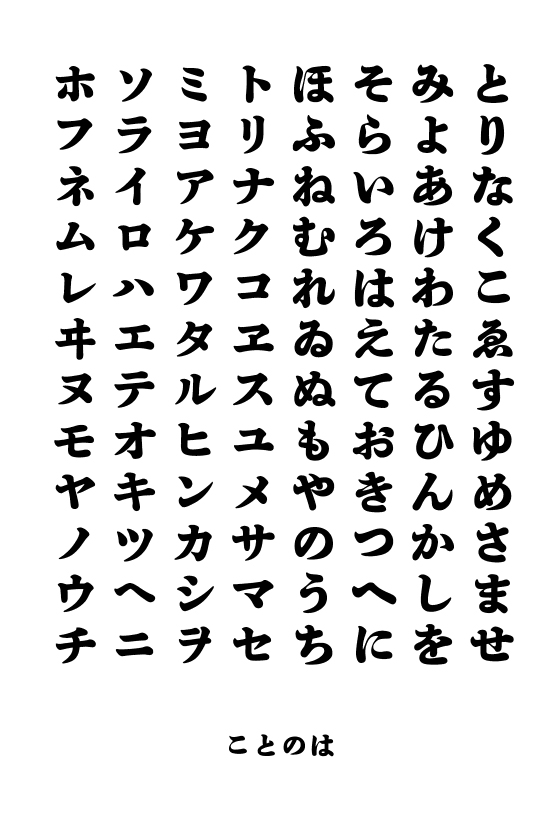 とりなくこゑすゆめさませ
みよあけわたるひんかしを
そらいろはえておきつへに
ほふねむれゐぬもやのうち
トリナクコヱスユメサマセ
ミヨアケワタルヒンカシヲ
ソライロハエテオキツヘニ
ホフネムレヰヌモヤノウチ
ことのは